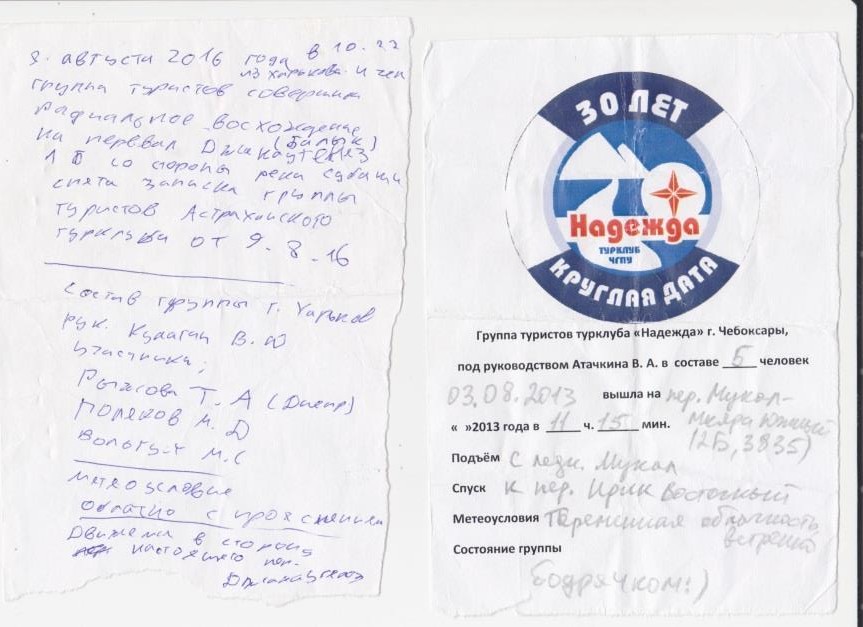 9. августа 2016 года в 10.22
из Харькова и
группа туристов совершила
радиальное восхождение
на перевал (Балык)
1Б со стороны реки Субаши
снята записка группы
туристов Астраханского
турклуба от 9.8.16
Состав группы г. Харьков
рук. Кулагин В.
участники;
Рыжова Т. А (Днепр)
Поляков М. Д
М. С
метеоусловие
облачно с прояснениями
Движемся в сторону
настоящего пер.
30 ЛЕТ
Надежда
ТУРКЛУБ
ЧГПУ
КРУГЛАЯ ДАТА
Группа туристов турклуба «Надежда» г. Чебоксары,
под руководством Атачкина В. А. в составе 5 человек
03.08.2013 вышла на пер. Мукал-
« »2013 года в 11 ч. 15 мин. Мкяра Южный
(2Б, 3835)
Подъём с ледн. Мукал
Спуск к пер. Ирик Восточный
Метеоусловия Переменная облачность,
ветрено
Состояние группы
Бодрячком:)